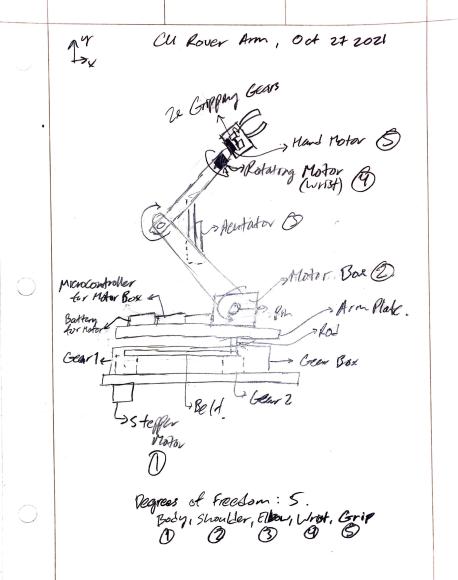 y
x
CU Rover Arm, Oct 27 2021
2x Gripping Gears
Hand Motor ⑤
Rotating Motor
(wrist) ④
Actuator ③
Motor Box ②
Microcontroller
for Motor Box
Battery
for Motor
Arm Plate.
Rod
Gear 1
Gear Box
Gear 2
Belt.
Stepper
Motor
①
Degrees of Freedom: 5.
Body, Shoulder, Elbow, Wrist, Grip
① ② ③ ④ ⑤